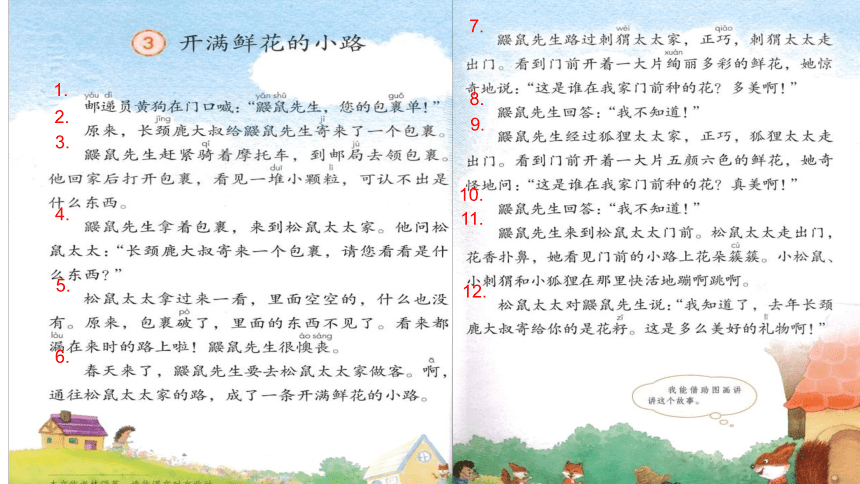 3 开满鲜花的小路
1.
yóu dì yǎn shǔ guǒ
邮递员黄狗在门口喊：“鼹鼠先生，您的包裹单！”
2.
jǐng jì
原来，长颈鹿大叔给鼹鼠先生寄来了一个包裹。
3.
qí jú
鼹鼠先生赶紧骑着摩托车，到邮局去领包裹。
duī lì
他回家后打开包裹，看见一堆小颗粒，可认不出是
什么东西。
4.
鼹鼠先生拿着包裹，来到松鼠太太家。他问松
鼠太太：“长颈鹿大叔寄来一个包裹，请您看看是什
么东西？”
5.
松鼠太太拿过来一看，里面空空的，什么也没
pò
有。原来，包裹破了，里面的东西不见了。看来都
lòu ào sàng
漏在来时的路上啦！鼹鼠先生很懊丧。
6.
a
春天来了，鼹鼠先生要去松鼠太太家做客。啊，
通往松鼠太太家的路，成了一条开满鲜花的小路。
7.
wèi qiǎo
鼹鼠先生路过刺猬太太家，正巧，刺猬太太走
xuàn
出门。看到门前开着一大片绚丽多彩的鲜花，她惊
奇地说：“这是谁在我家门前种的花？多美啊！”
8.
鼹鼠先生回答：“我不知道！”
9.
鼹鼠先生经过狐狸太太家，正巧，狐狸太太走
出门。看到门前开着一大片五颜六色的鲜花，她奇
怪地问：“这是谁在我家门前种的花？真美啊！”
10.
鼹鼠先生回答：“我不知道！”
11.
鼹鼠先生来到松鼠太太门前。松鼠太太走出门，
cù
花香扑鼻，她看见门前的小路上花朵簇簇。小松鼠、
小刺猬和小狐狸在那里快活地蹦啊跳啊。
12.
松鼠太太对鼹鼠先生说：“我知道了，去年长颈
zǐ lǐ
鹿大叔寄给你的是花籽。这是多么美好的礼物啊！”
我能借助图画讲
讲这个故事。